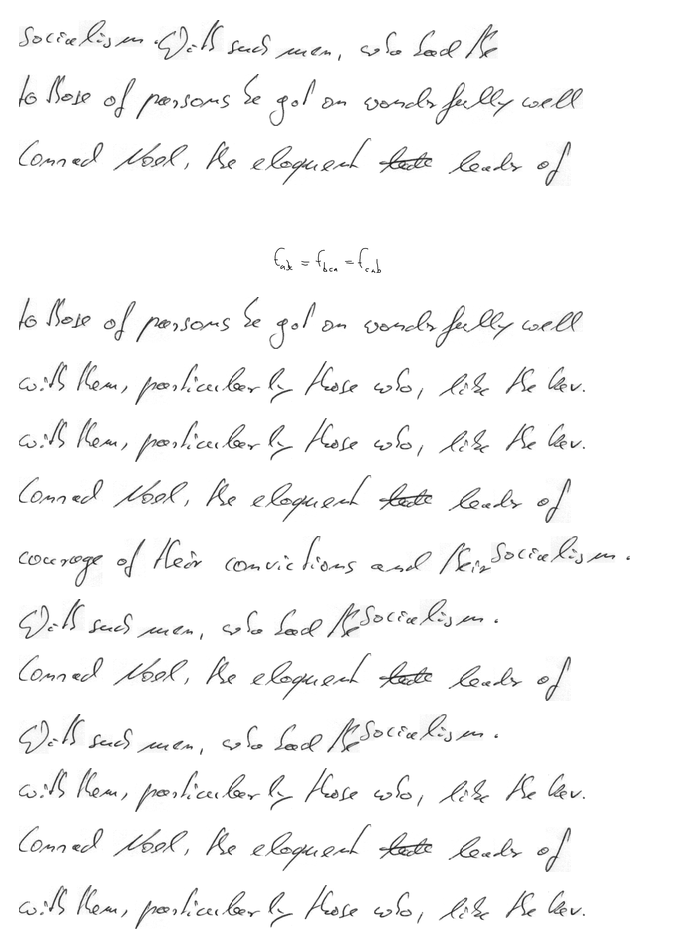 Socialism. With such men, who had the
to those of persons he got on wonderfully well
Conrad Noel, the eloquent leader of
f_{abc} = f_{bca} = f_{cab}
to those of persons he got on wonderfully well
with them, particularly those who, like the Rev.
with them, particularly those who, like the Rev.
Conrad Noel, the eloquent leader of
courage of their convictions and their Socialism.
With such men, who had the Socialism.
Conrad Noel, the eloquent leader of
With such men, who had the Socialism.
with them, particularly those who, like the Rev.
Conrad Noel, the eloquent leader of
with them, particularly those who, like the Rev.